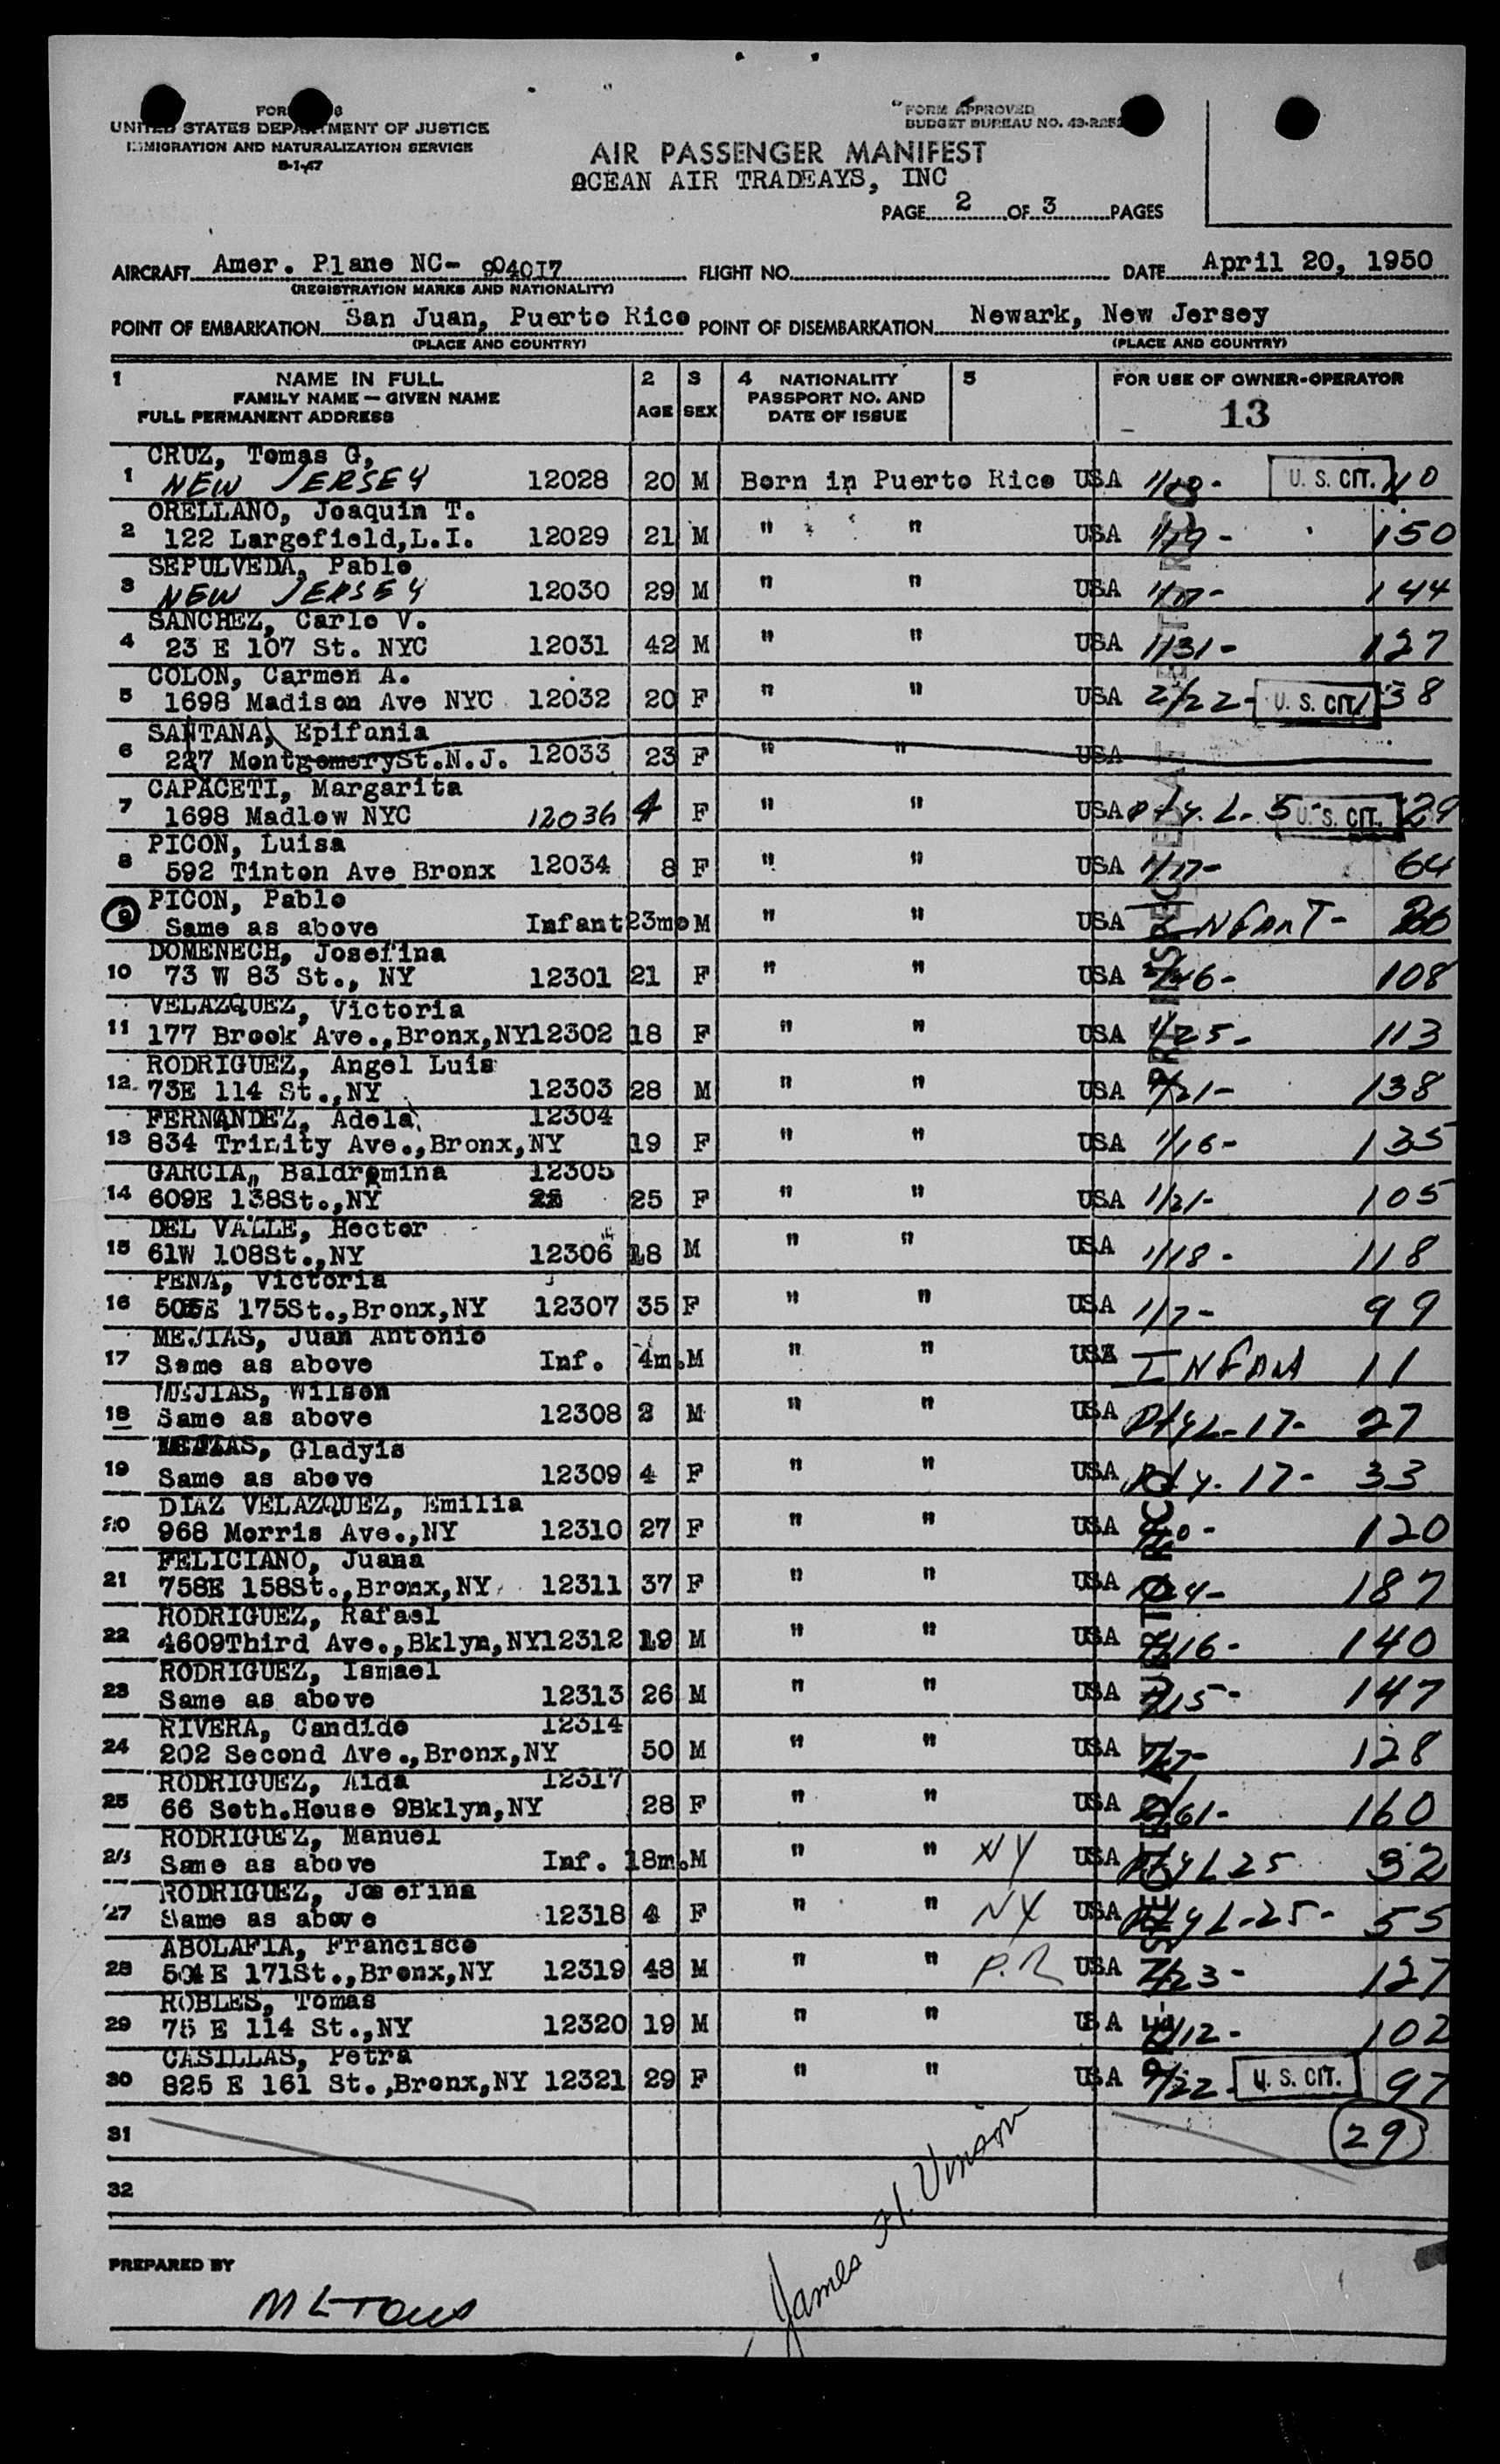 UNITED STATES DEPARTMENT OF JUSTICE
IMMIGRATION AND NATURALIZATION SERVICE
FORM APPROVED
BUDGET BUREAU NO.
AIR PASSENGER MANIFEST
OCEAN AIR TRADEAYS, INC
PAGE 2 OF 3 PAGES
AIRCRAFT Amer. Plane NC- FLIGHT NO. DATE April 20, 1950
(REGISTRATION MARKS AND NATIONALITY)
POINT OF EMBARKATION San Juan, Puerto Rico POINT OF DISEMBARKATION Newark, New Jersey
(PLACE AND COUNTRY) (PLACE AND COUNTRY)
1 NAME IN FULL 2 3 4 NATIONALITY 5 FOR USE OF OWNER-OPERATOR
FAMILY NAME — GIVEN NAME AGE SEX PASSPORT NO. AND
FULL PERMANENT ADDRESS DATE OF ISSUE 13
CRUZ, Tomas G,
1 NEW JERSEY 12028 20 M Born in Puerto Rico USA U. S. CIT.
ORELLANO, Joaquin T.
2 122 Largefield, L.I. 12029 21 M " " USA 150
SEPULVEDA, Pablo
3 NEW JERSEY 12030 29 M " " USA 144
SANCHEZ, Carlo V.
4 23 E 107 St. NYC 12031 42 M " " USA 1/31- 127
COLON, Carmen A.
5 1698 Madison Ave NYC 12032 20 F " " USA 2/22- U. S. CIT. 138
SANTANA, Epifania
6 227 Montgomery St. N.J. 12033 23 F " " USA
CAPACETI, Margarita
7 1698 Madlow NYC 12036 4 F " " USA U. S. CIT. 29
PICON, Luisa
8 592 Tinton Ave Bronx 12034 8 F " " USA 1/17- 64
PICON, Pablo
9 Same as above Infant 23mo M " " USA INFANT-
DOMENECH, Josefina
10 73 W 83 St., NY 12301 21 F " " USA 108
VELAZQUEZ, Victoria
11 177 Brook Ave., Bronx, NY 12302 18 F " " USA 1/25- 113
RODRIGUEZ, Angel Luis
12 73E 114 St., NY 12303 28 M " " USA 138
FERNANDEZ, Adela 12304
13 834 Trinity Ave., Bronx, NY 19 F " " USA 1/16- 135
GARCIA, Baldromina 12305
14 609E 138St., NY 25 F " " USA 1/21- 105
DEL VALLE, Hector
15 61W 108St., NY 12306 18 M " " USA 1/18- 118
PENA, Victoria
16 175St., Bronx, NY 12307 35 F " " USA 1/7- 99
MEJIAS, Juan Antonio
17 Same as above Inf. 4m. M " " USA INFANT 11
MEJIAS, Wilson
18 Same as above 12308 2 M " " USA 27
MEJIAS, Gladyis
19 Same as above 12309 4 F " " USA 33
DIAZ VELAZQUEZ, Emilia
20 968 Morris Ave., NY 12310 27 F " " USA 120
FELICIANO, Juana
21 758E 158St., Bronx, NY 12311 37 F " " USA 187
RODRIGUEZ, Rafael
22 4609Third Ave., Bklyn, NY12312 19 M " " USA 140
RODRIGUEZ, Ismael
23 Same as above 12313 26 M " " USA 147
RIVERA, Candido 12314
24 202 Second Ave., Bronx, NY 50 M " " USA 128
RODRIGUEZ, Aida 12317
25 66 Soth.House 9Bklyn, NY 28 F " " USA 160
RODRIGUEZ, Manuel
26 Same as above Inf. 18m. M " " NY USA 32
RODRIGUEZ, Josefina
27 Same as above 12318 4 F " " NY USA 55
ABOLAFIA, Francisco
28 504 E 171St., Bronx, NY 12319 48 M " " P.R USA 127
ROBLES, Tomas
29 75 E 114 St., NY 12320 19 M " " USA 102
CASILLAS, Petra
30 825 E 161 St., Bronx, NY 12321 29 F " " USA U. S. CIT. 97
31 29
32
PRE-INSPECTED AT PUERTO RICO
PRE-INSPECTED AT PUERTO RICO
James H. Vinson
PREPARED BY